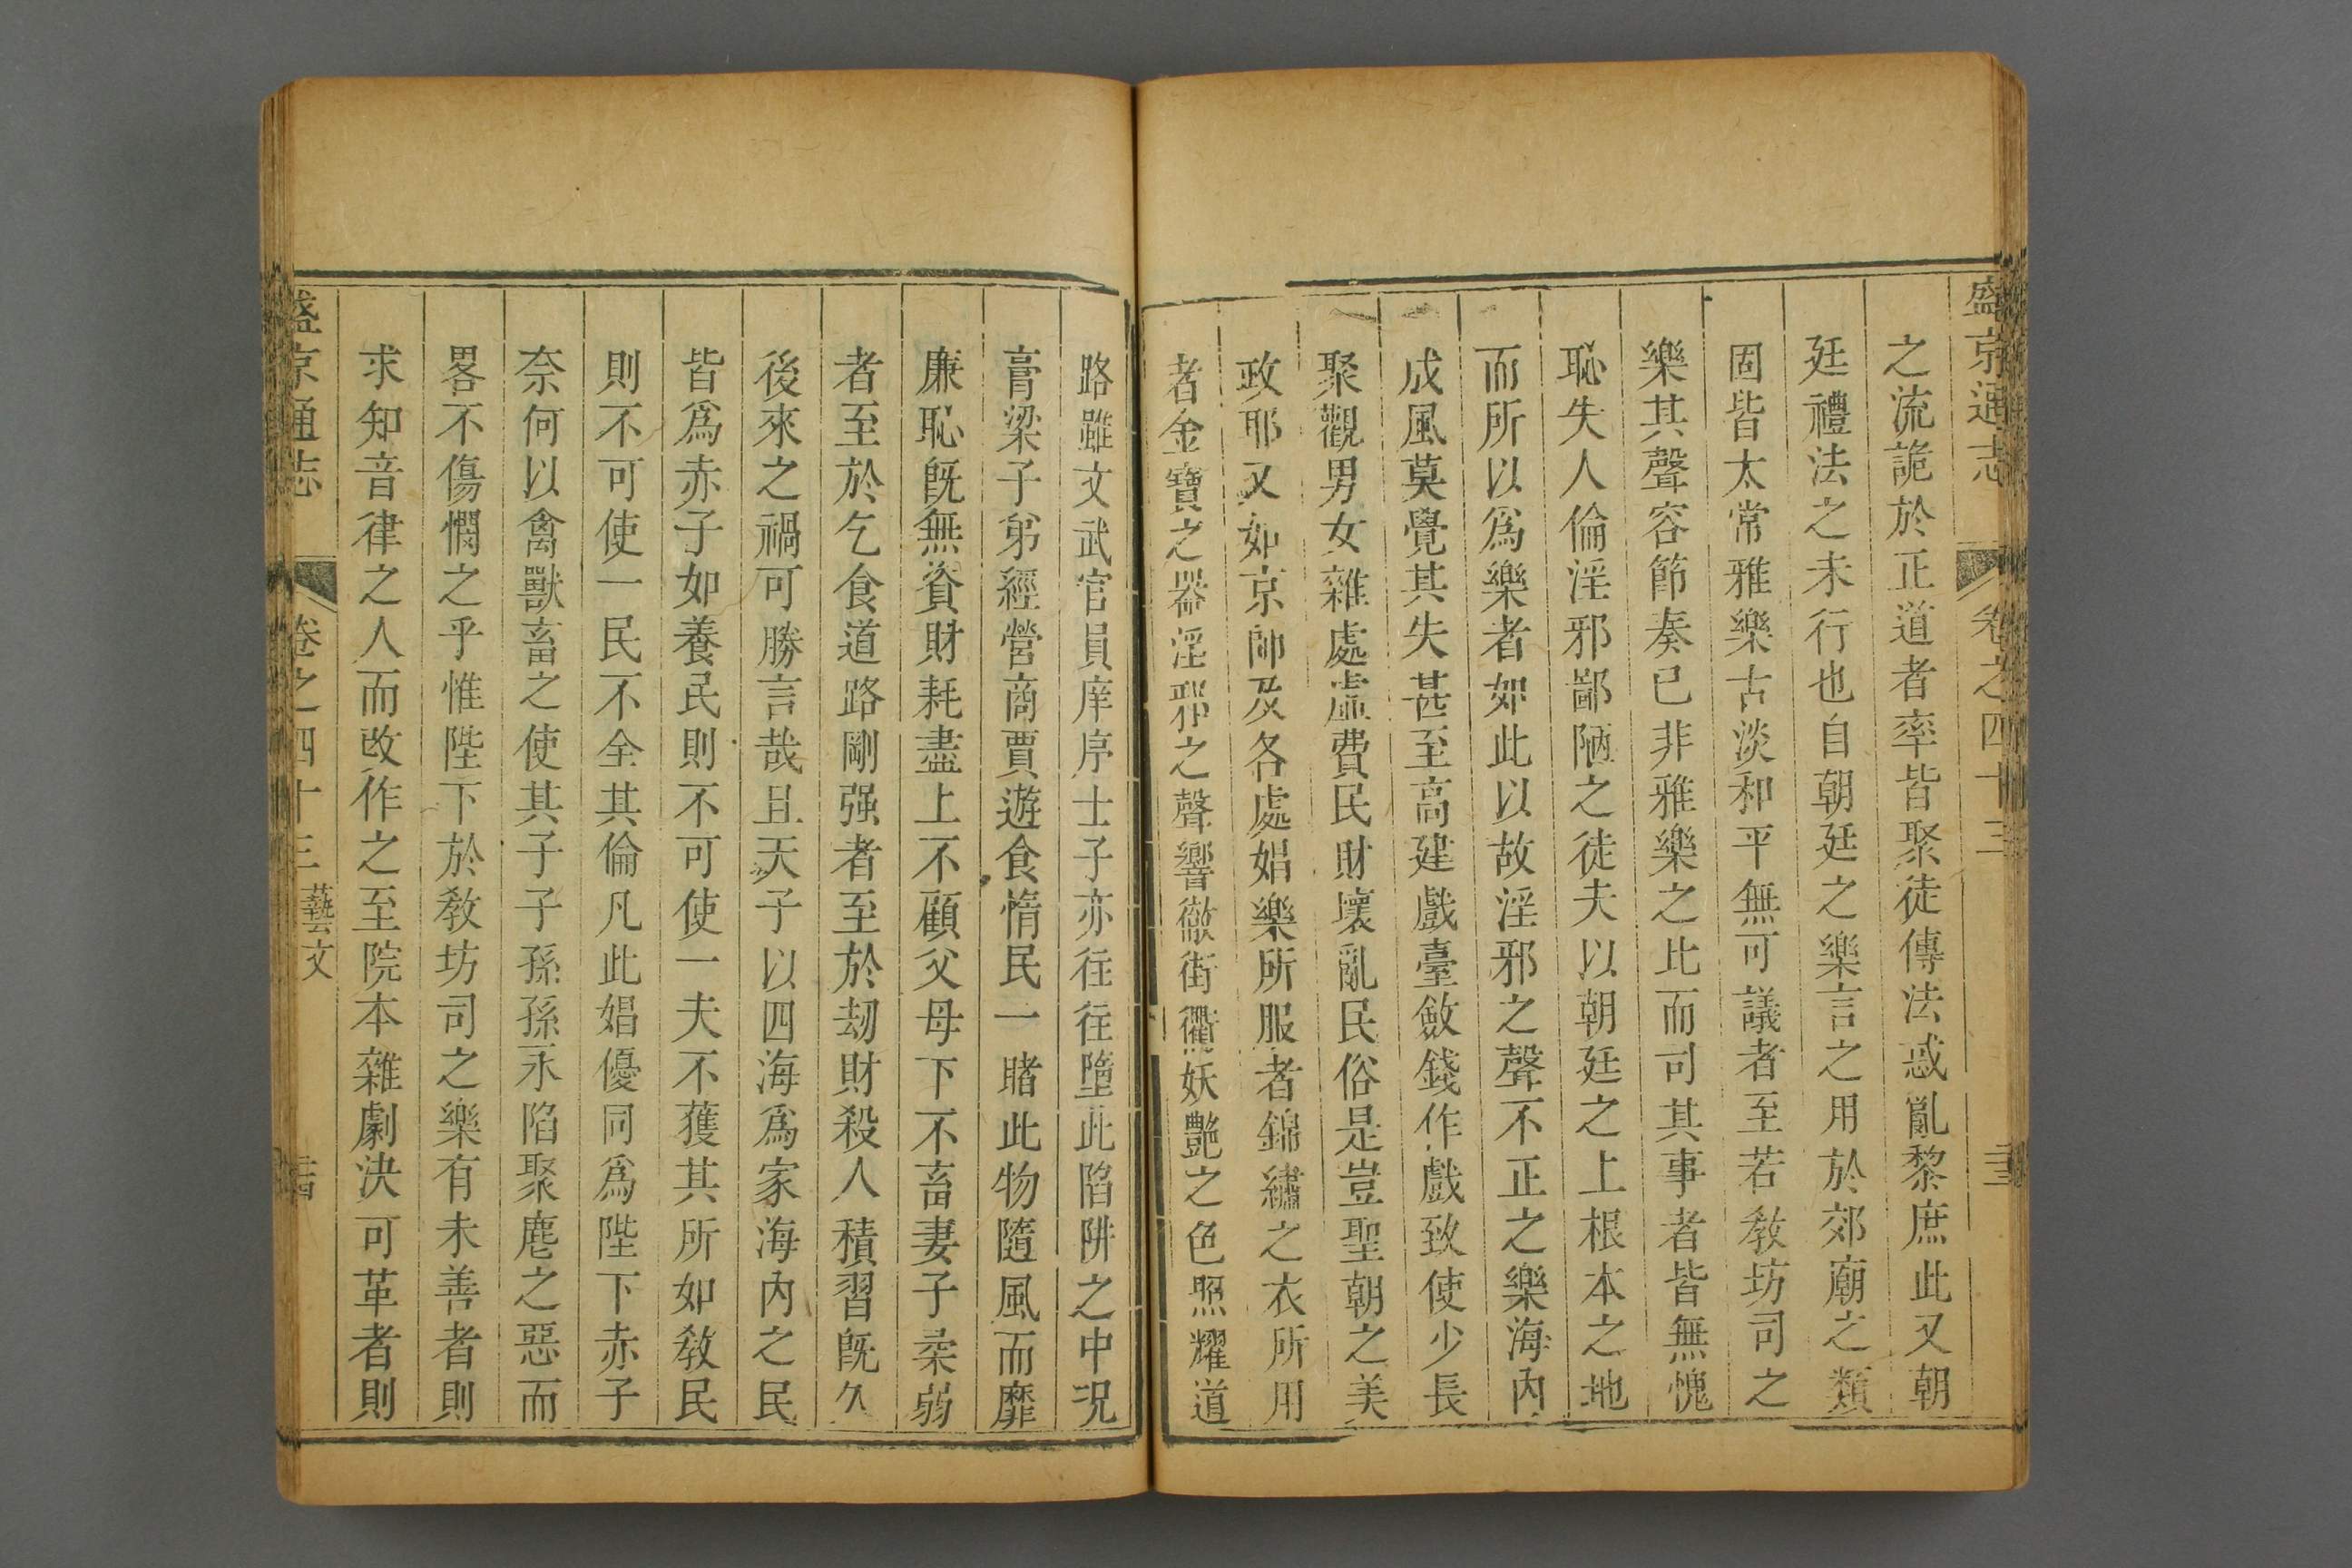 盛京通志 卷之四十三 三
之流詭於正道者率皆聚徒傳法惑亂黎庶此又朝
廷禮法之未行也自朝廷之樂言之用於郊廟之類
固皆太常雅樂古淡和平無可議者至若敎坊司之
樂其聲容節奏已非雅樂之此而司其事者皆無愧
恥失人倫淫邪鄙陋之徒夫以朝廷之上根本之地
而所以爲樂者如此以故淫邪之聲不正之樂海內
成風莫覺其失甚至高建戲臺斂錢作戲致使少長
聚觀男女雜處虛費民財壞亂民俗是豈聖朝之美
政耶又如京師及各處娼樂所服者錦繡之衣所用
者金寶之器淫邪之聲響徹街衢妖艷之色照耀道
路雖文武官員庠序士子亦往往墮此陷阱之中况
膏梁子弟經營商賈遊食惰民一睹此物隨風而靡
廉恥旣無資財耗盡上不顧父母下不畜妻子柔弱
者至於乞食道路剛强者至於刧財殺人積習旣久
後來之禍可勝言哉且天子以四海爲家海內之民
皆爲赤子如養民則不可使一夫不獲其所如敎民
則不可使一民不全其倫凡此娼優同爲陛下赤子
奈何以禽獸畜之使其子子孫孫永陷聚麀之惡而
畧不傷憫之乎惟陛下於敎坊司之樂有未善者則
求知音律之人而改作之至院本雜劇決可革者則
盛京通志 卷之四十三 藝文